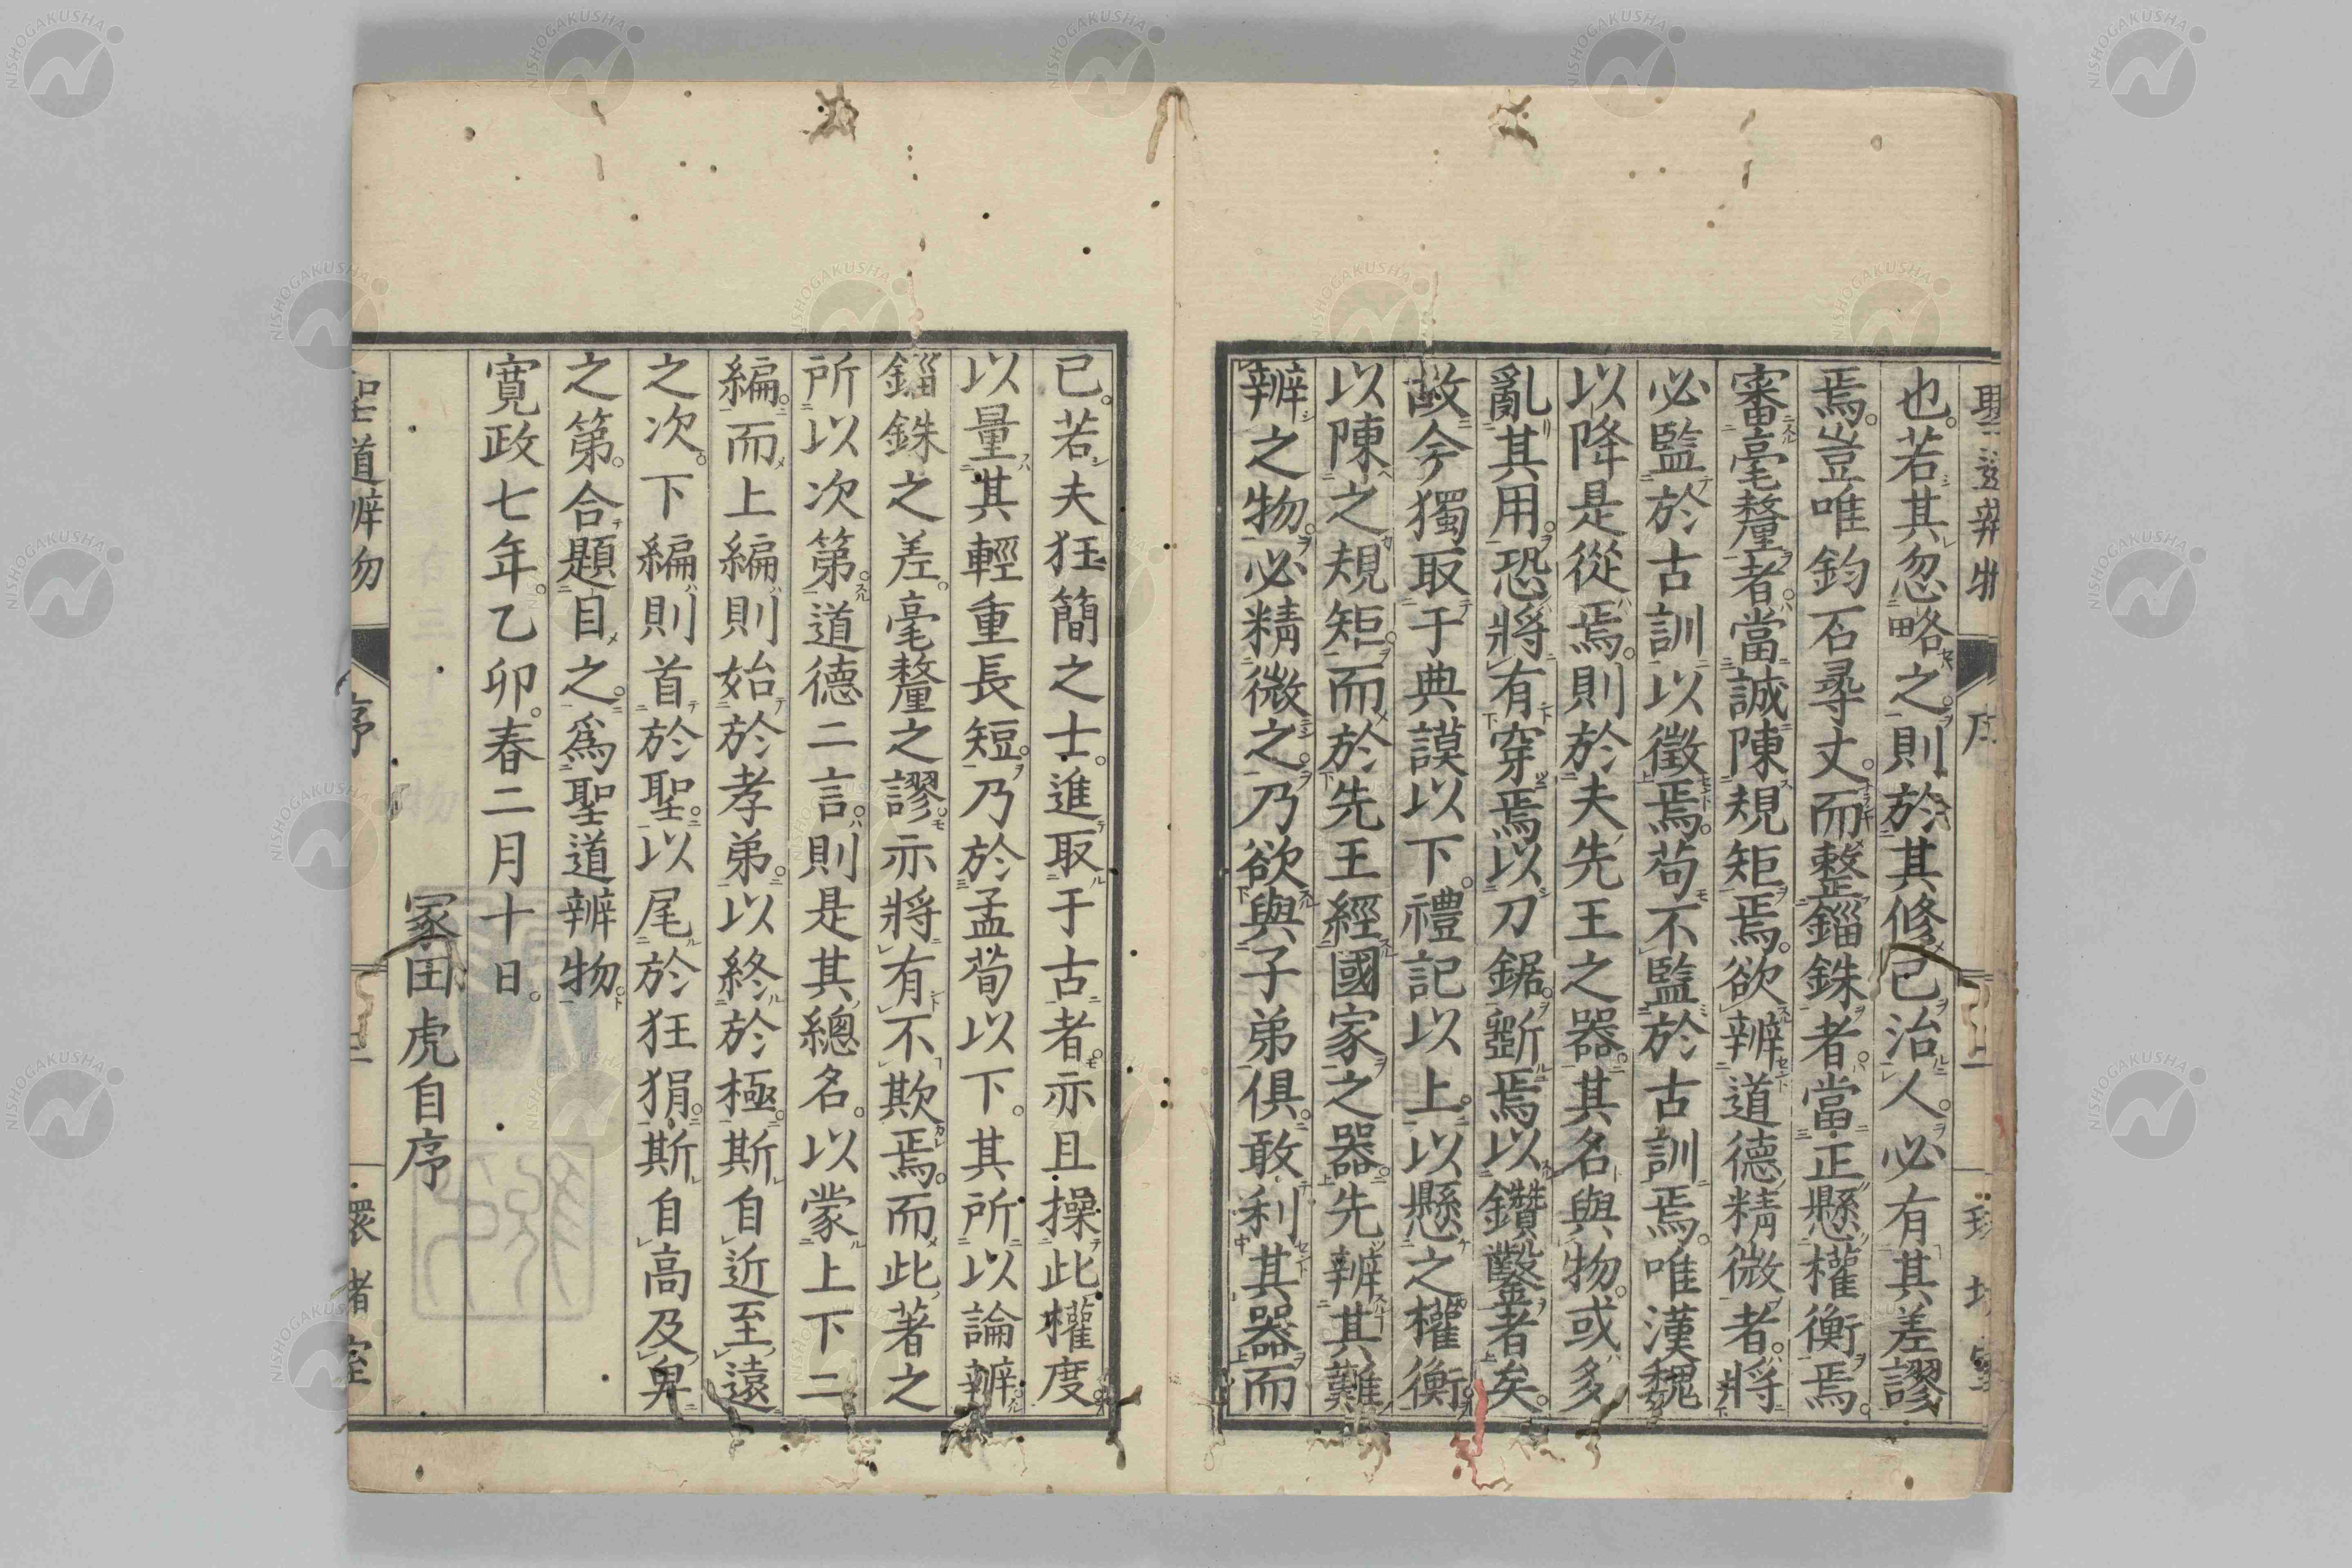 也。若其忽略之。則於其修己治人。必有其差謬
焉。豈唯鈞石尋丈。而整錙銖者。當正懸權衡焉。
審毫釐者。當誠陳規矩焉。欲辨道德精微者。將
必監於古訓以徵焉。苟不監於古訓焉。唯漢魏
以降是從焉。則於夫先王之器。其名與物。或多
亂其用。恐將有穿焉以刀鋸。斵焉以鑽鑿者矣。
故今獨取于典謨以下。禮記以上。以懸之權衡。
以陳之規矩。而於先王經國家之器。先辨其難
辨之物。必精微之。乃欲與子弟俱。敢利其器而
已。若夫狂簡之士。進取于古者。亦且操此權度。
以量其輕重長短。乃於孟荀以下。其所以論辨。
錙銖之差。毫釐之謬。亦將有不欺焉。而此著之
所以次第。道德二言。則是其總名。以蒙上下二
編。而上編則始於孝弟。以終於極。斯自近至遠
之次。下編則首於聖。以尾於狂狷。斯自高及卑
之第。合題目之。爲聖道辨物。
寬政七年。乙卯。春二月十日。
冢田虎自序
聖道辨物 序 二 環堵室